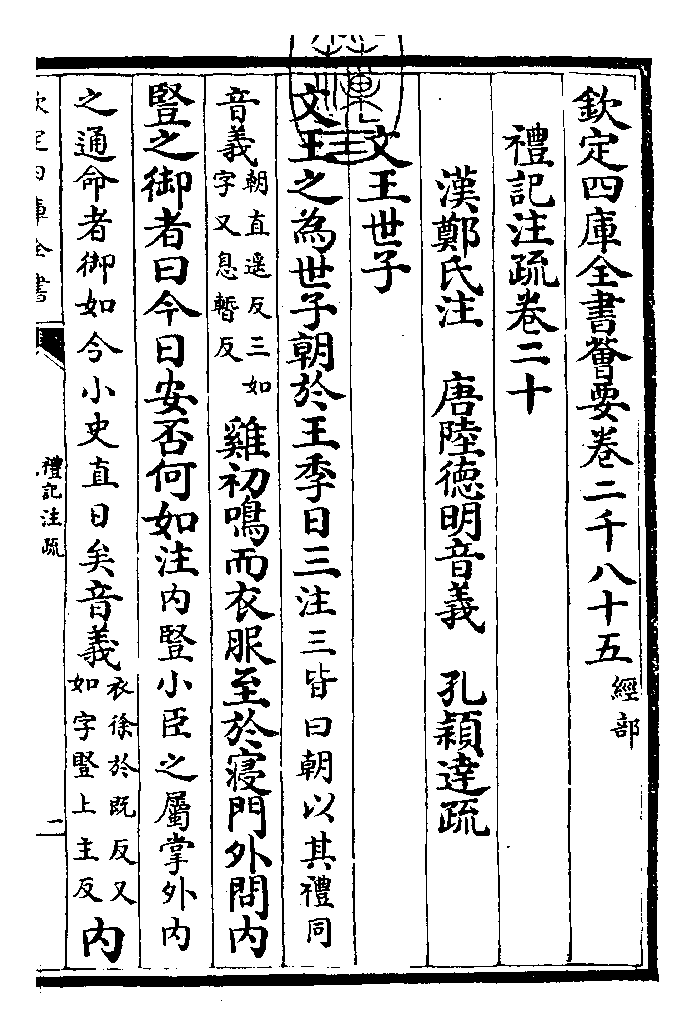 欽定四庫全書薈要卷二千八十五 經部
禮記注疏卷二十
漢鄭氏注 唐陸德明音義 孔穎達疏
文王世子
文王之為世子朝於王季日三注三皆曰朝以其禮同
音義朝直遥反三如字又息暫反雞初鳴而衣服至於寢門外問内
豎之御者曰今日安否何如注内豎小臣之屬掌外内
之通命者御如今小史直日矣音義衣徐於既反又如字豎上主反内
欽定四庫全書
禮記注疏